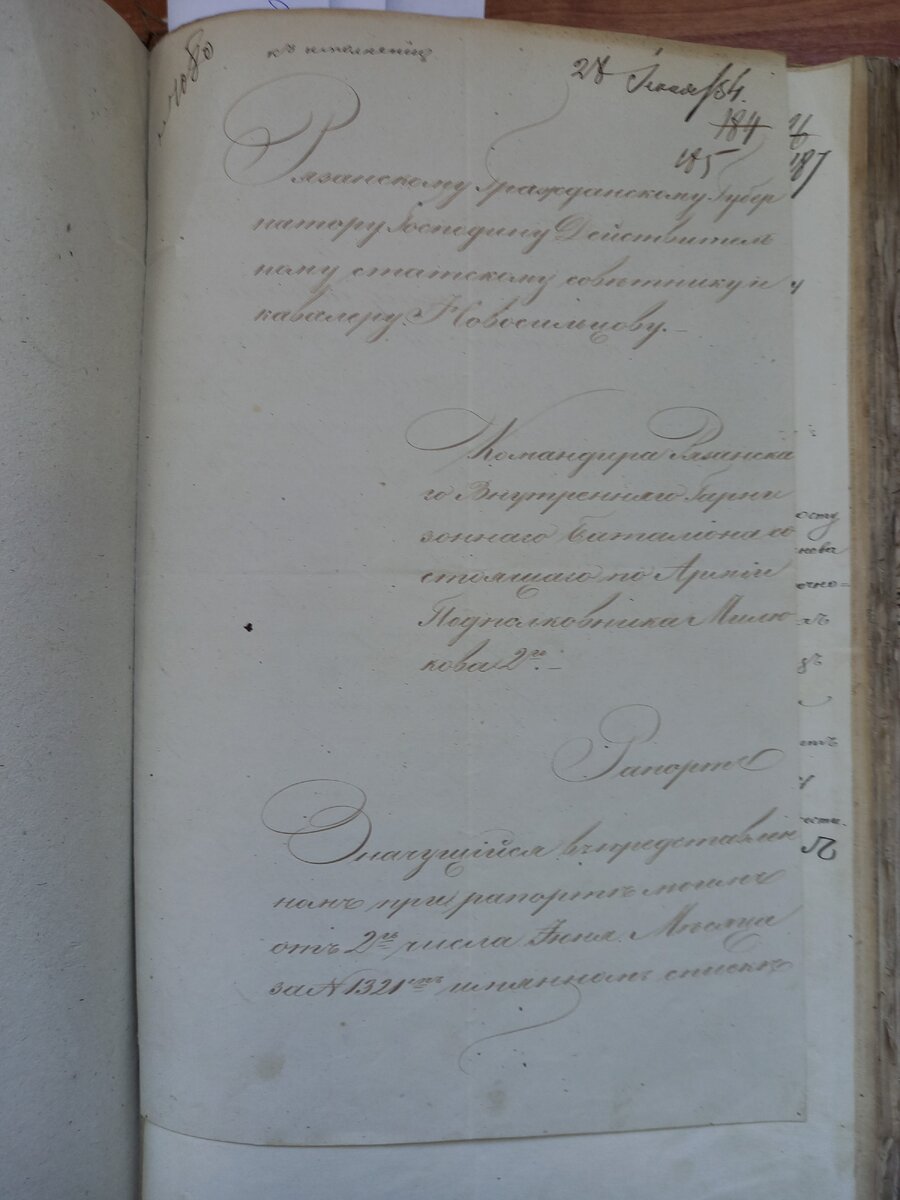 № 1080
къ исполненію
28 Іюня/54.
184
185
Рязанскому Гражданскому Губер
натору Господину Действитель
ному статскому советнику и
кавалеру Новосильцову.
Командира Рязанска
го Внутренняго Гарни
зоннаго Баталіона со
стоящаго по Арміи
Подполковника Милю
кова 2го.
Рапортъ
Значущійся въ представлен
номъ при рапортѣ моемъ
отъ 2го числа Іюня Мѣсяца
за N 1321мъ имянномъ спискѣ
187